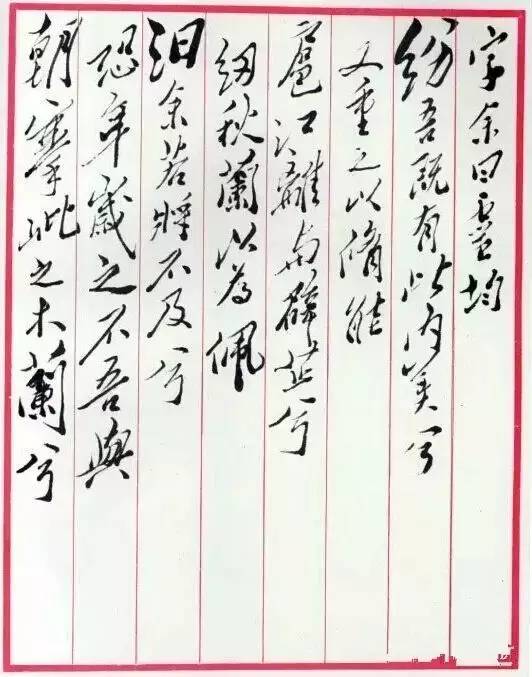 字余曰靈均
紛吾既有此內美兮
又重之以脩能
扈江離與薜芷兮
紉秋蘭以為佩
汩余若將不及兮
恐年歲之不吾與
朝搴阰之木蘭兮